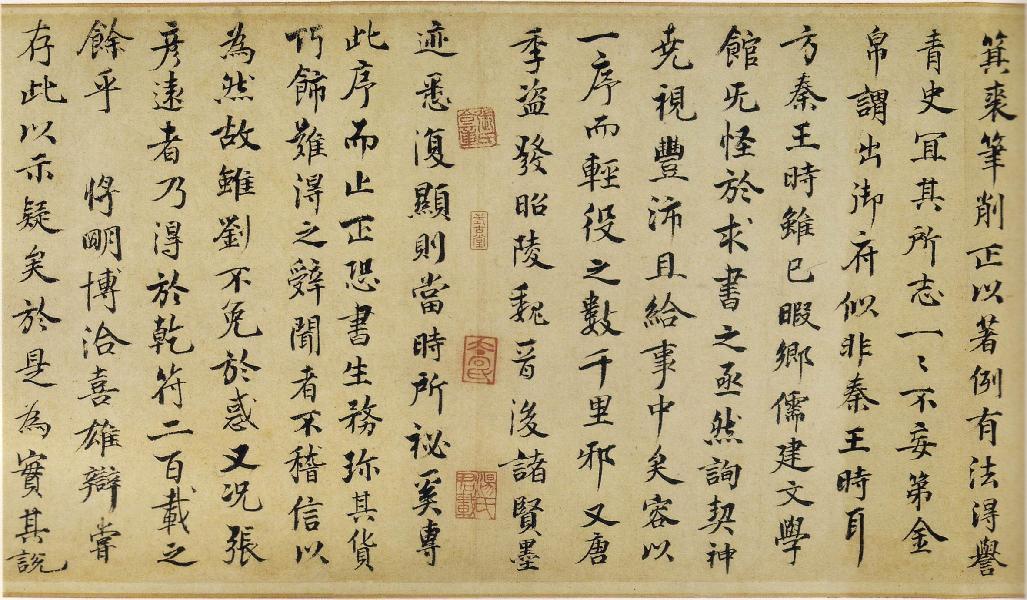 箕裘筆削正以著例有法得譽
青史冝其所志一〻不妄第金
帛謂出御府似非秦王時耳
方秦王時雖已暇鄉儒建文學
館旡怪於求書之亟然詢契神
尭視豐沛且給事中矣容以
一序而輕役之數千里邪又唐
季盗發昭陵魏晉後諸賢墨
迹悉復顯則當時所祕奚專
此序而止正恐書生務珎其貨
巧飾難得之辭聞者不稽信以
為然故雖劉不免於惑又况張
彥遠者乃得於乾符二百載之
餘乎 將明博洽喜雄辯嘗
存此以示疑矣於是為實其說